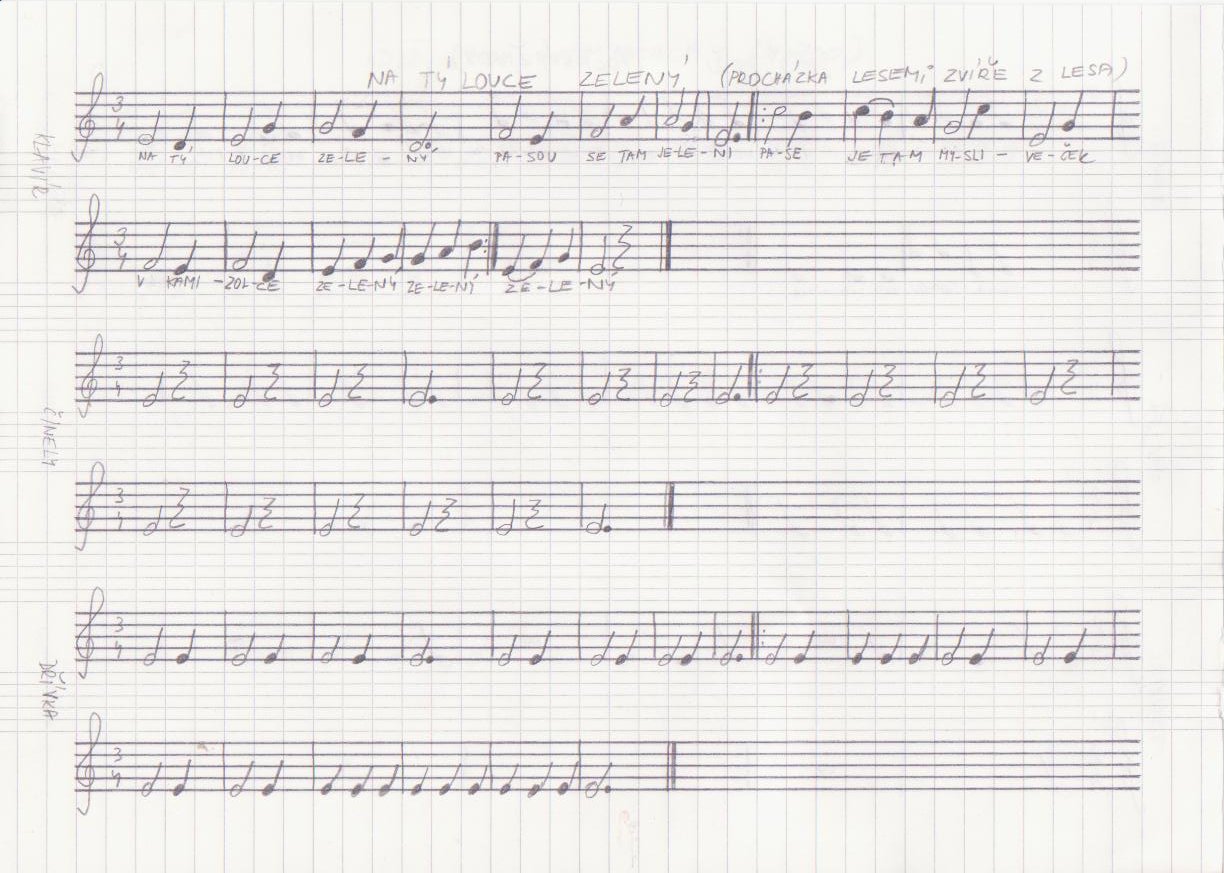 NA TÝ LOUCE ZELENÝ (PROCHÁZKA LESEM; ZVÍŘE Z LESA)
KLAVÍR
3 4
NA TÝ LOU-CE ZE-LE-NÝ PA-SOU SE TAM JE-LE-NI PA-SE JE TAM MY-SLI-VE-ČEK
3 4
V KAMI-ZOL-CE ZE-LE-NÝ ZE-LE-NÝ ZE-LE-NÝ
ČINELY
3 4
3 4
DŘÍVKA
3 4
3 4